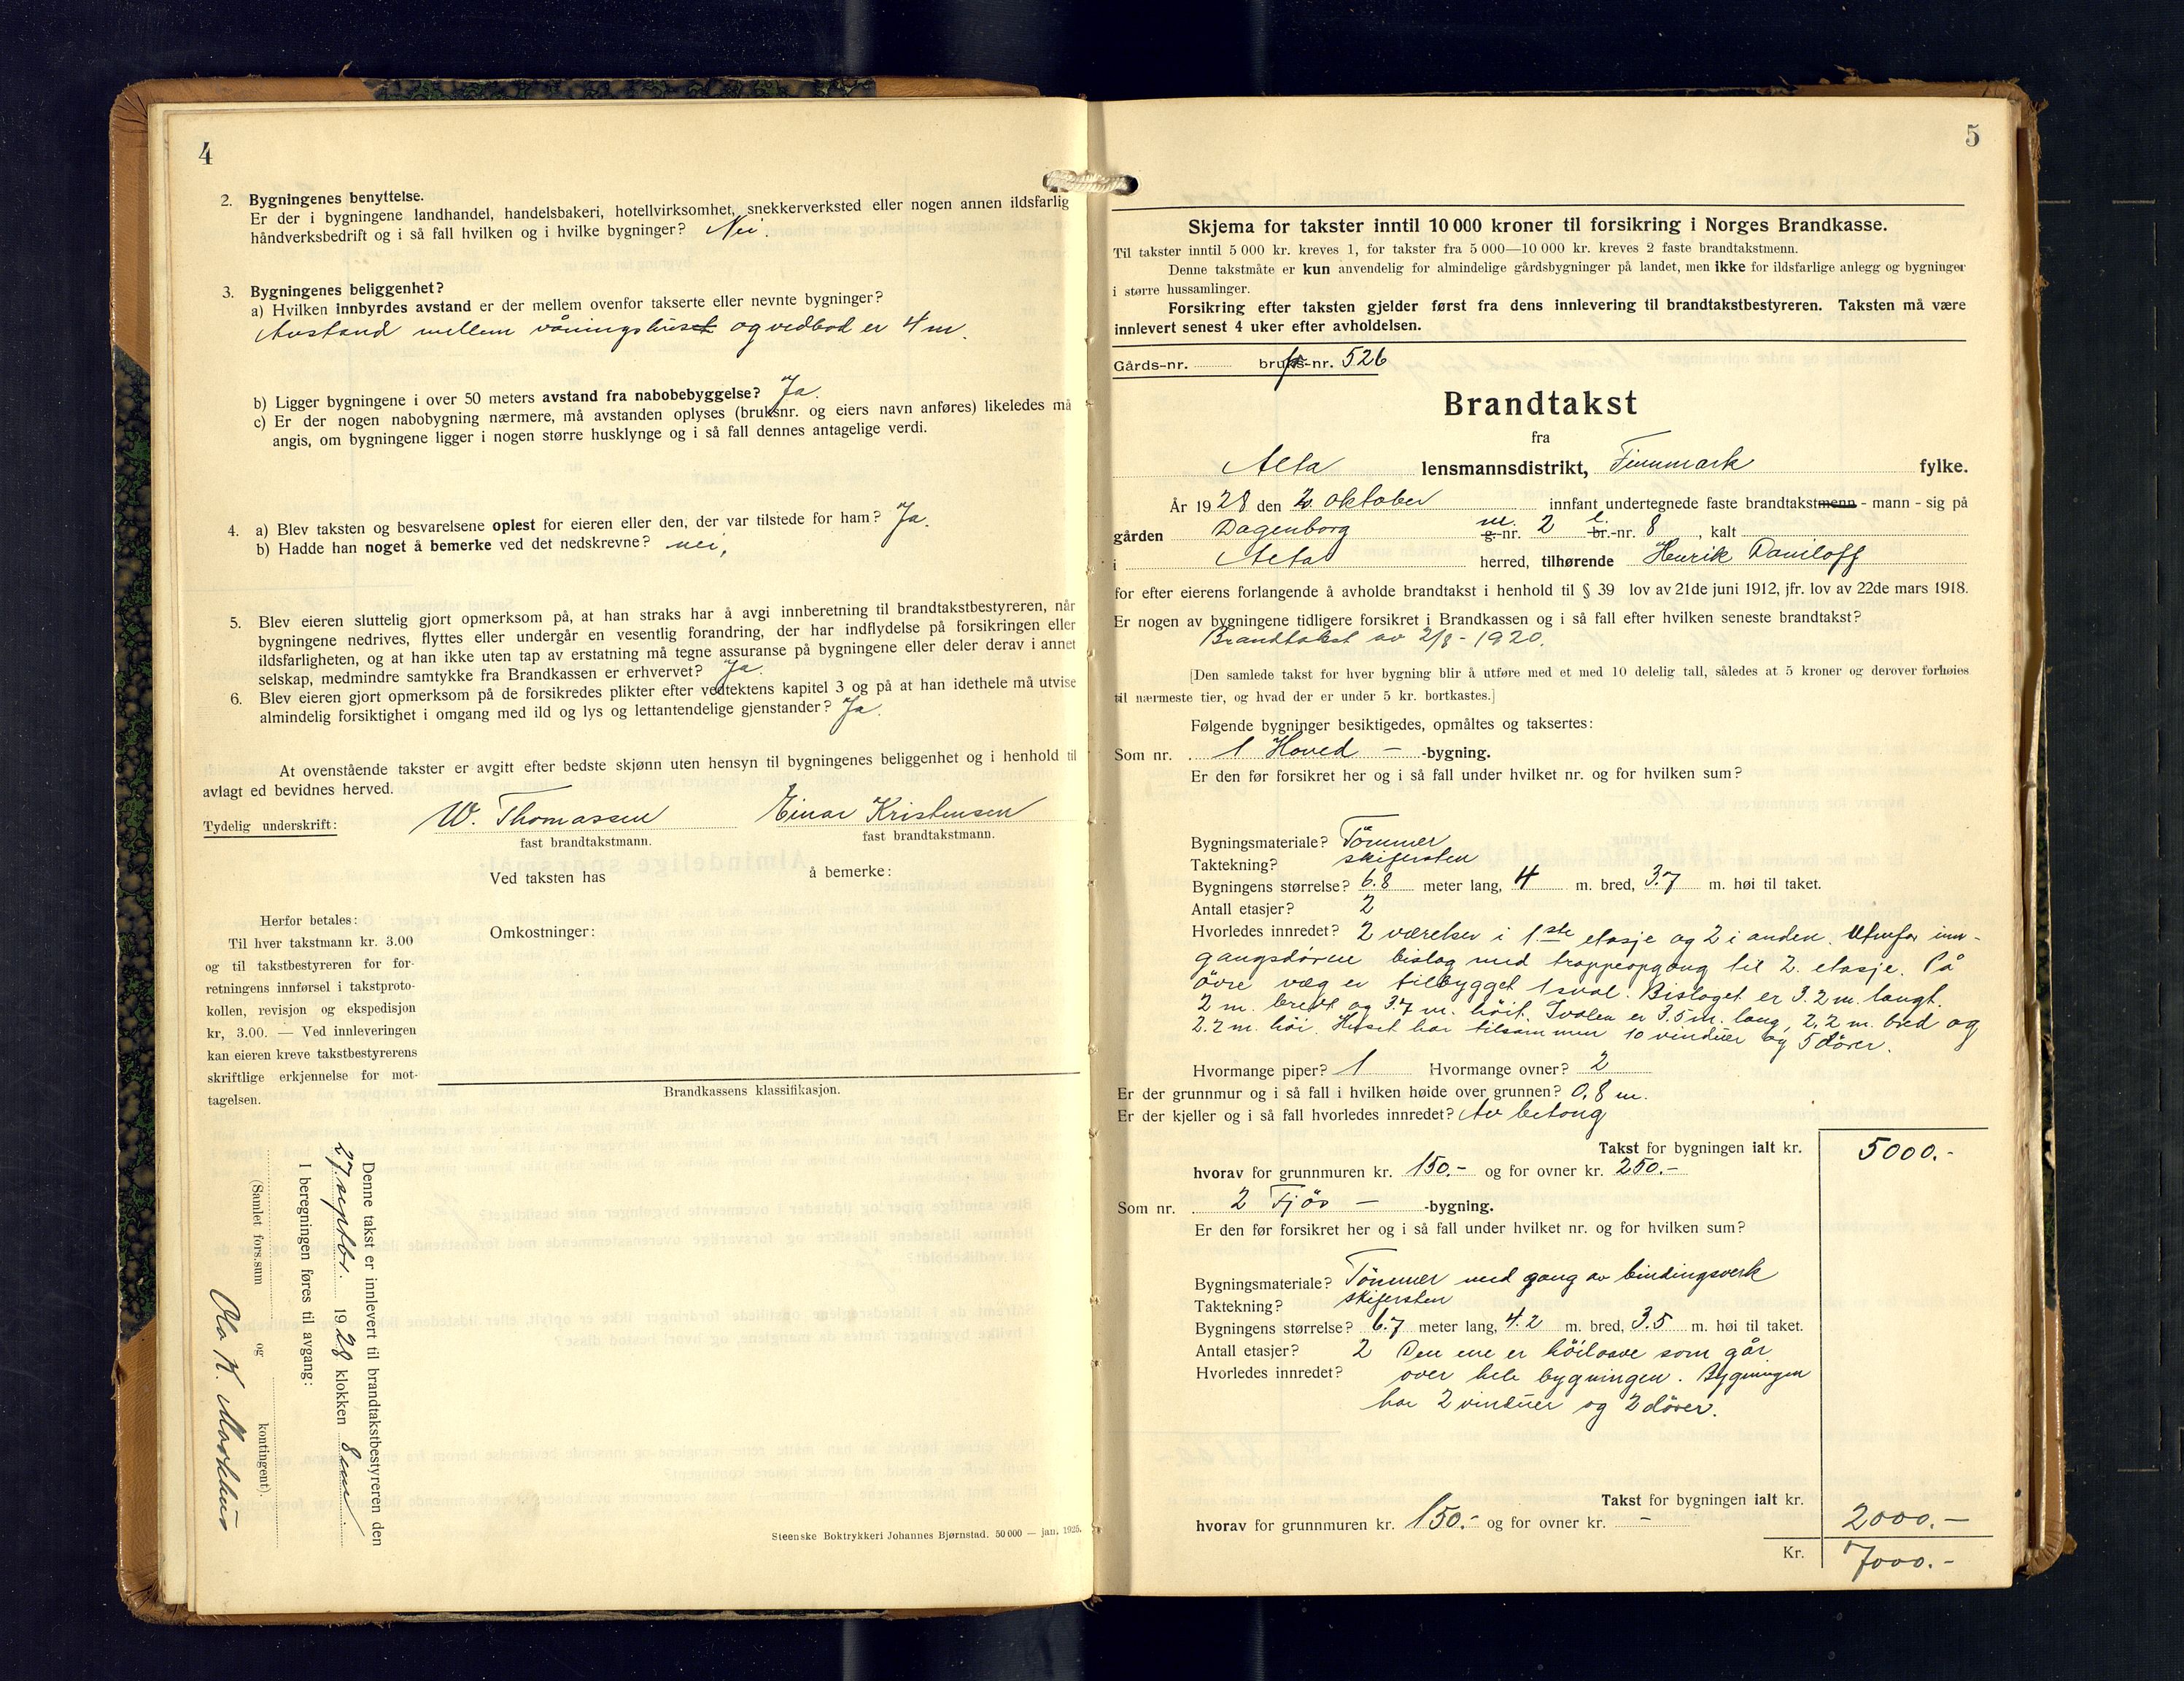 4
2. Bygningenes benyttelse.
Er der i bygningene landhandel, handelsbakeri, hotellvirksomhet, snekkerverksted eller nogen annen ildsfarlig
håndverksbedrift og i så fall hvilken og i hvilke bygninger? Nei.
3. Bygningenes beliggenhet?
a) Hvilken innbyrdes avstand er der mellem ovenfor takserte eller nevnte bygninger?
Avstand mellem våningshuset og vedbod er 4 m.
b) Ligger bygningene i over 50 meters avstand fra nabobebyggelse? Ja.
c) Er der nogen nabobygning nærmere, må avstanden oplyses (bruksnr. og eiers navn anføres) likeledes må
angis, om bygningene ligger i nogen større husklynge og i så fall dennes antagelige verdi.
4. a) Blev taksten og besvarelsene oplest for eieren eller den, der var tilstede for ham? Ja.
b) Hadde han noget å bemerke ved det nedskrevne? nei,
5. Blev eieren sluttelig gjort opmerksom på, at han straks har å avgi innberetning til brandtakstbestyreren, når
bygningene nedrives, flyttes eller undergår en vesentlig forandring, der har indflydelse på forsikringen eller
ildsfarligheten, og at han ikke uten tap av erstatning må tegne assuranse på bygningene eller deler derav i annet
selskap, medmindre samtykke fra Brandkassen er erhvervet? Ja.
6. Blev eieren gjort opmerksom på de forsikredes plikter efter vedtektens kapitel 3 og på at han idethele må utvise
almindelig forsiktighet i omgang med ild og lys og lettantendelige gjenstander? Ja.
At ovenstående takster er avgitt efter bedste skjønn uten hensyn til bygningenes beliggenhet og i henhold til
avlagt ed bevidnes herved.
Tydelig underskrift: W. Thomassen Einar Kristensen
fast brandtakstmann. fast brandtakstmann.
Ved taksten has å bemerke:
Herfor betales:
Til hver takstmann kr. 3.00
og til takstbestyreren for for-
retningens innførsel i takstproto-
kollen, revisjon og ekspedisjon
kr, 3.00. — Ved innleveringen
kan eieren kreve takstbestyrerens
skriftlige erkjennelse for mot-
tagelsen.
Omkostninger:
Brandkassens klassifikasjon.
Denne takst er innlevert til brandtakstbestyreren den
27. septbr. 1928 klokken 8 em.
I beregningen føres til avgang:
(Samlet fors.sum og kontingent).
Ola K.
Steenske Boktrykkeri Johannes Bjørnstad. 50 000 — jan. 1925.
5
Skjema for takster inntil 10 000 kroner til forsikring i Norges Brandkasse.
Til takster inntil 5 000 kr. kreves 1, for takster fra 5 000—10 000 kr. kreves 2 faste brandtakstmenn.
Denne takstmåte er kun anvendelig for almindelige gårdsbygninger på landet, men ikke for ildsfarlige anlegg og bygninger
i større hussamlinger.
Forsikring efter taksten gjelder først fra dens innlevering til brandtakstbestyreren. Taksten må være
innlevert senest 4 uker efter avholdelsen.
Gårds-nr. bruks-nr. 526
Brandtakst
fra
Alta lensmannsdistrikt, Finnmark fylke.
År 1928 den 2. oktober innfant undertegnede faste brandtakstmenn - mann - sig på
gården Dagenborg m. g.-nr. 2 l. br.-nr. 8, kalt
i Alta herred, tilhørende Henrik Daniloff
for efter eierens forlangende å avholde brandtakst i henhold til § 39 lov av 21de juni 1912, jfr. lov av 22de mars 1918.
Er nogen av bygningene tidligere forsikret i Brandkassen og i så fall efter hvilken seneste brandtakst?
Brandtakst av 2/8 - 1920.
[Den samlede takst for hver bygning blir å utføre med et med 10 delelig tall, således at 5 kroner og derover forhøies
til nærmeste tier, og hvad der er under 5 kr. bortkastes.]
Følgende bygninger besiktigedes, opmåltes og taksertes:
Som nr. 1 Hoved — -bygning.
Er den før forsikret her og i så fall under hvilket nr. og for hvilken sum?
Bygningsmateriale? Tömmer
Taktekning? skifersten
Bygningens størrelse? 6.8 meter lang, 4 m. bred, 3.7 m. høi til taket.
Antall etasjer? 2
Hvorledes innredet? 2 værelser i 1.ste etasje og 2 i anden. Utenfor inn-
gangsdören bislag med trappeopgang til 2. etasje. På
övre væg er tilbygget 1 sval. Bislaget er 3.2 m. langt.
2 m. bredt og 3.7 m. höit. Svalen er 3.5 m. lang, 2.2 m. bred og
2.2 m. höi. Huset har tilsammen 10 vinduer og 5 dörer.
Hvormange piper? 1 Hvormange ovner? 2
Er der grunnmur og i så fall i hvilken høide over grunnen? 0,8 m.
Er der kjeller og i så fall hvorledes innredet? Av betong
Takst for bygningen ialt kr. 5000.-
hvorav for grunnmuren kr. 150.- og for ovner kr. 250.-
Som nr. 2 Fjös — -bygning.
Er den før forsikret her og i så fall under hvilket nr. og for hvilken sum?
Bygningsmateriale? Tömmer med gang av bindingsverk
Taktekning? skifersten
Bygningens størrelse? 6.7 meter lang, 4.2 m. bred, 3.5 m. høi til taket.
Antall etasjer? 2 Den ene er höilaave som går
Hvorledes innredet? over hele bygningen. Bygningen
har 2 vinduer og 2 dörer.
Takst for bygningen ialt kr.
hvorav for grunnmuren kr. 150.- og for ovner kr. - 2000.-
Kr. 7000.-